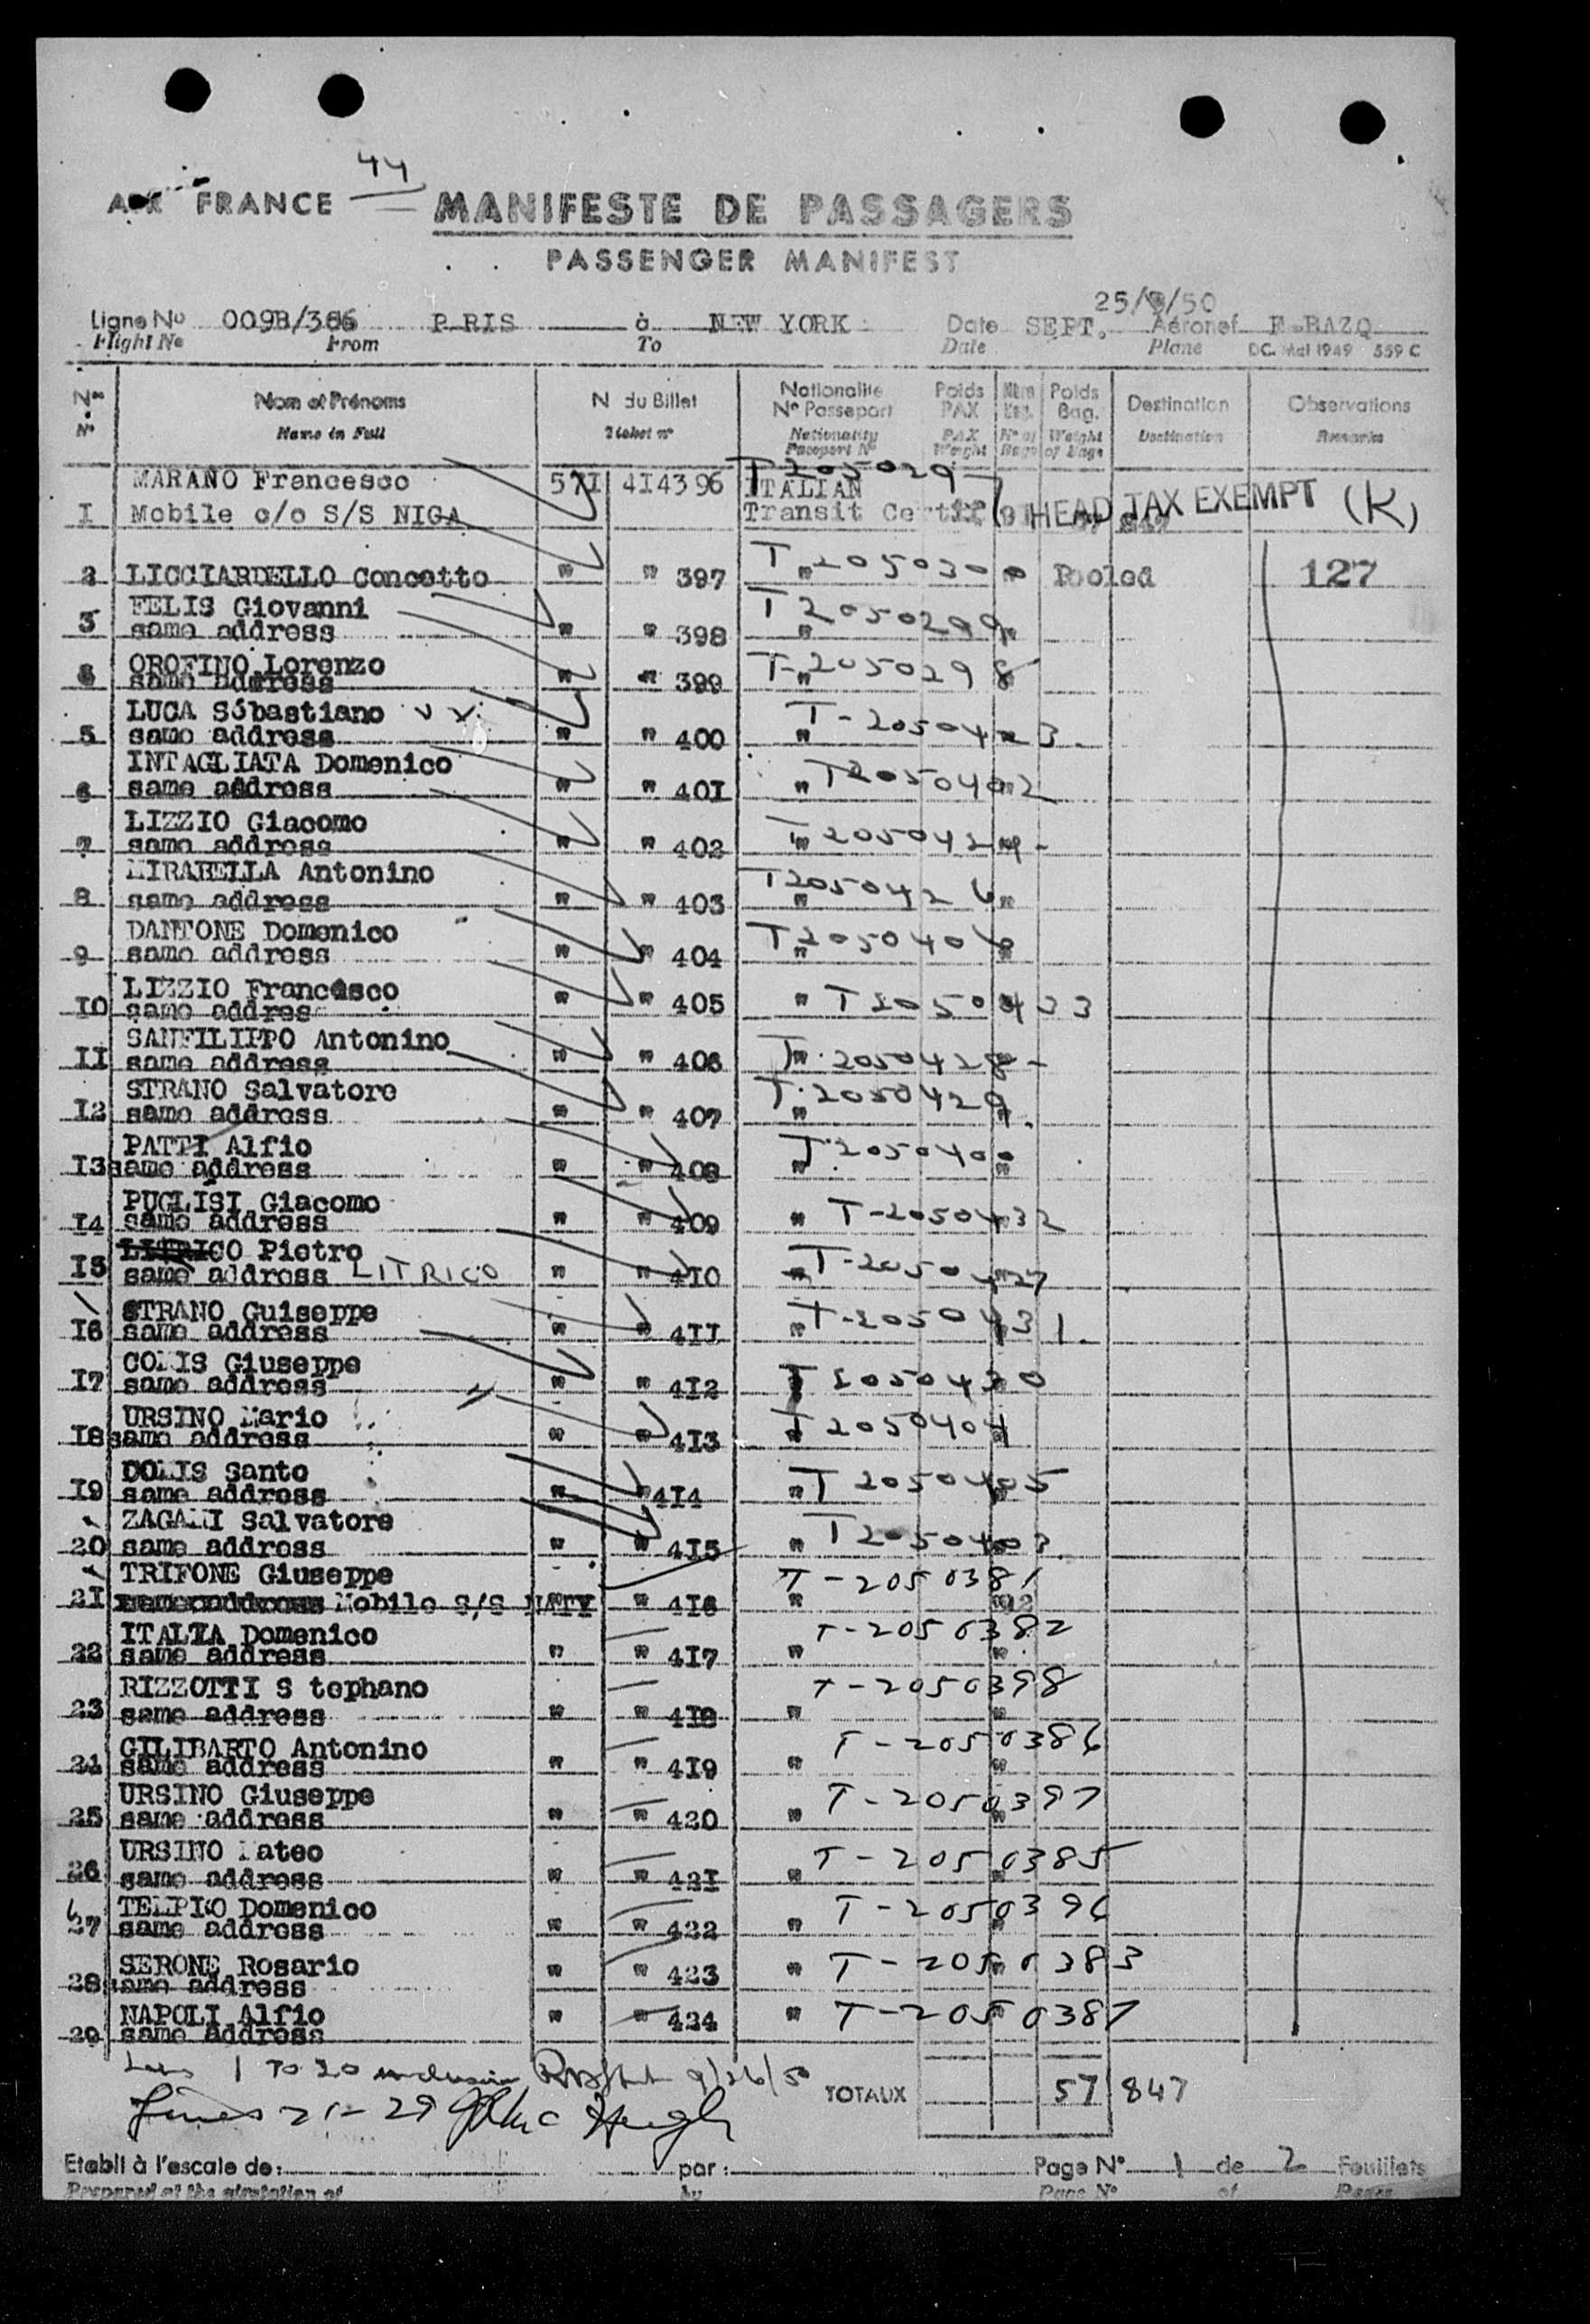 44
AIR FRANCE MANIFESTE DE PASSAGERS
PASSENGER MANIFEST
25/9/50
Ligne No 009B/366 P RIS à NEW YORK Date SEPT. Aéronef F-BAZQ
Flight No From To Date Plane DC. Mai 1949 559 C
Nos Nom et Prénoms N du Billet Nationalité Poids Nbre Poids Destination Observations
N° Passeport PAX Bag. Bag.
N° Name in Full Ticket n° Nationality PAX N° of Weight Destination Remarks
Passport N° Weight Bags of Bags
MARANO Francesco 571 414396 ITALIAN
I Mobile c/o S/S NIGA Transit Certif HEAD TAX EXEMPT (K)
2 LICCIARDELLO Concetto " " 397 T 2050300 " Pooled 127
FELIS Giovanni T 2050299
3 same address " " 398 " "
OROFINO Lorenzo T-2050298
same address " " 399 "
LUCA Sébastiano T-2050423
5 same address " " 400 "
INTAGLIATA Domenico T2050402
6 same address " " 401 " "
LIZZIO Giacomo
7 same address " " 402 " T 205042
MIRABELLA Antonino T2050426
8 same address " " 403 " "
DANTONE Domenico T2050406
9 same address " " 404 " "
LIZZIO Francesco
I0 same addres " " 405 " T 2050433
SANFILIPPO Antonino
II same address " " 406 " T 2050428 -
STRANO Salvatore T-2050429
I2 same address " " 407 " "
PATTI Alfio T-2050400
I3 same address " " 408 " "
PUGLISI Giacomo
I4 same address " " 409 " T-2050432
LITRICO Pietro
I5 same address LITRICO " " 4I0 " T-2050427
STRANO Guiseppe
I6 same address " " 4II " T-2050431.
COMIS Giuseppe
I7 same address " " 4I2 T 2050430
URSINO Mario
I8 same address " " 4I3 T 2050404
DOMIS Santo
I9 same address " " 4I4 " T 2050405
ZAGAMI Salvatore
20 same address " " 4I5 " T2050403
TRIFONE Giuseppe T-2050381
2I same address Mobile S/S NATY " " 4I6 "
ITALIA Domenico T-2050382
22 same address " " 4I7 " "
RIZZOTTI S tephano T-2050398
23 same address " " 4I8 " "
GILIBARTO Antonino T-2050386
24 same address " " 4I9 " "
URSINO Giuseppe T-2050397
25 same address " " 420 " "
URSINO Mateo T-2050385
26 same address " " 42I " "
TEMPIO Domenico T-2050396
27 same address " " 422 " "
SERONE Rosario T-2050383
28 same address " " 423 " "
NAPOLI Alfio T-2050387
29 same address " " 424 " "
1 to 20 inclusive 9/26/50
TOTAUX 57 847
Lines 21-29
Etabli à l'escale de: par: Page N° 1 de 2 Feuillets
Prepared at the airstation of by Page N° of Pages